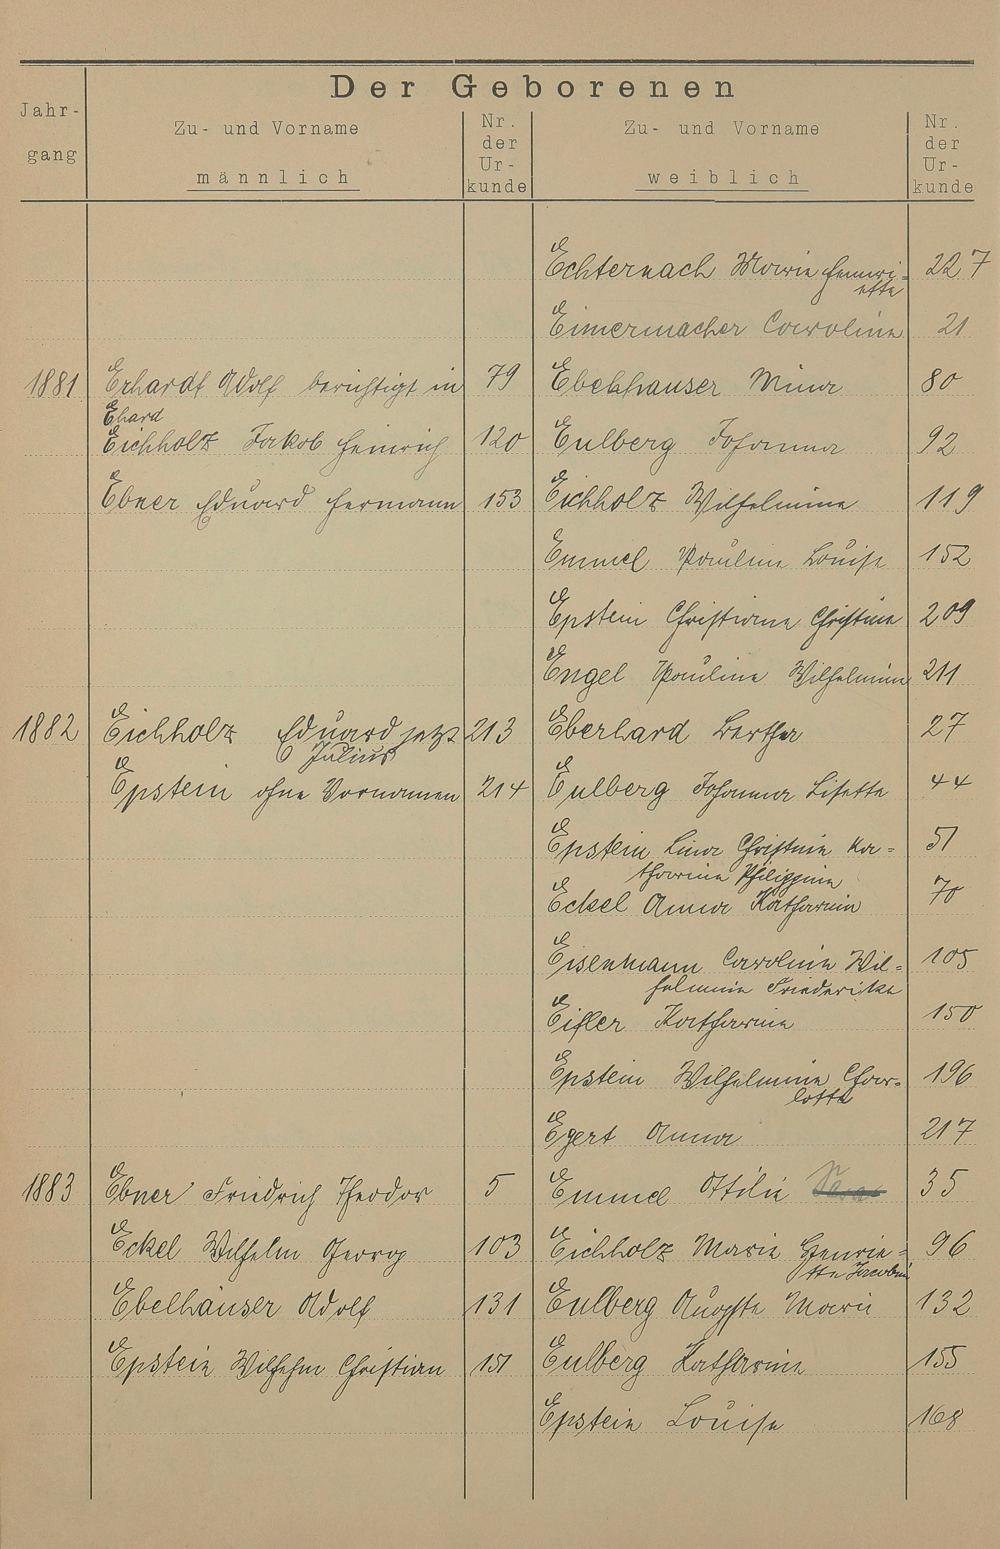 Der Geborenen
Jahr-
gang
Zu- und Vorname
männlich
Nr.
der
Ur-
kunde
Zu- und Vorname
weiblich
Nr.
der
Ur-
kunde
Echternach Marie Henri- 227
ette
Eimermacher Caroline 21
1881 Erhardt Adolf berichtigt in 79 Ebelhäuser Mina 80
Ehard
Eichholz Jakob Heinrich 120 Eulberg Johanna 92
Ebner Eduard Hermann 153 Eichholz Wilhelmine 119
Emmel Pauline Louise 152
Epstein Christiane Christine 209
Engel Pauline Wilhelmine 211
1882 Eichholz Eduard jetzt 213 Eberhard Bertha 27
Julius
Epstein ohne Vornamen 214 Eulberg Johanna Lisette 44
Epstein Lina Christine Ka- 51
tharine Philippine
Eckel Anna Katharine 70
Eisenmann Caroline Wil- 105
helmine Friederike
Eifler Katharine 150
Epstein Wilhelmine Char- 196
lotte
Egert Anna 217
1883 Ebner Friedrich Theodor 5 Emmel Ottilie 35
Eckel Wilhelm Georg 103 Eichholz Marie Henrie- 96
tte Jacobine
Ebelhäuser Adolf 131 Eulberg Auguste Marie 132
Epstein Wilhelm Christian 151 Eulberg Katharine 155
Epstein Louise 168